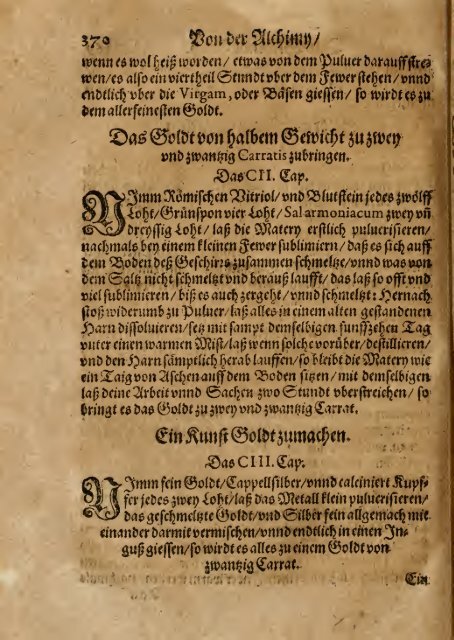 370 Von der Alchimy/
wenn es wol heiß worden/ etwas von dem Puluer darauff strewen/
wen/es also ein viertheil Stundt vber dem Fewer stehen/ vnnd
endtlich vber die Virgam, oder Bäsen giessen/ so wirdt es zu
dem allerfeinesten Goldt.
Das Goldt von halbem Gewicht zu zwey
vnd zwantzig Carratis zubringen.
Das CII. Cap.
NImm Römischen Vitriol/ vnd Blutstein jedes zwölff
Loht/ Grünspon vier Loht/ Sal armoniacum zwey vñ
dreyssig Loht/ laß die Matery erstlich puluerisieren/
nachmals bey einem kleinen Fewer sublimiern/ daß es sich auff
dem Boden deß Geschirrs zusammen schmeltze/ vnnd was von
dem Saltz nicht schmeltzt vnd herauß laufft/ das laß so offt vnd
viel sublimieren/ biß es auch zergeht/ vnnd schmeltzt: Hernach
stoß widerumb zu Puluer/ laß alles in einem alten gestandenen
Harn dissoluieren/ setz mit sampt demselbigen funffzehen Tag
vnter einen warmen Mist/ laß wenn solche vorüber/ destillieren/
vnd den Harn sämptlich herab lauffen/ so bleibt die Matery wie
ein Taig von Aschen auff dem Boden sitzen/ mit demselbigen
laß deine Arbeit vnnd Sachen zwo Stundt vberstreichen/ so
bringt es das Goldt zu zwey vnd zwantzig Carrat.
Ein Kunst Goldt zumachen.
Das CIII. Cap.
NImm fein Goldt/ Cappellsilber/ vnnd calciniert Kupffer
fer jedes zwey Loht/ laß das Metall klein puluerisieren/
das geschmeltzte Goldt/ vnd Silber fein allgemach mit
einander darmit vermischen/ vnnd endtlich in einen In-
guß giessen/ so wirdt es alles zu einem Goldt von
zwantzig Carrat.
Ein